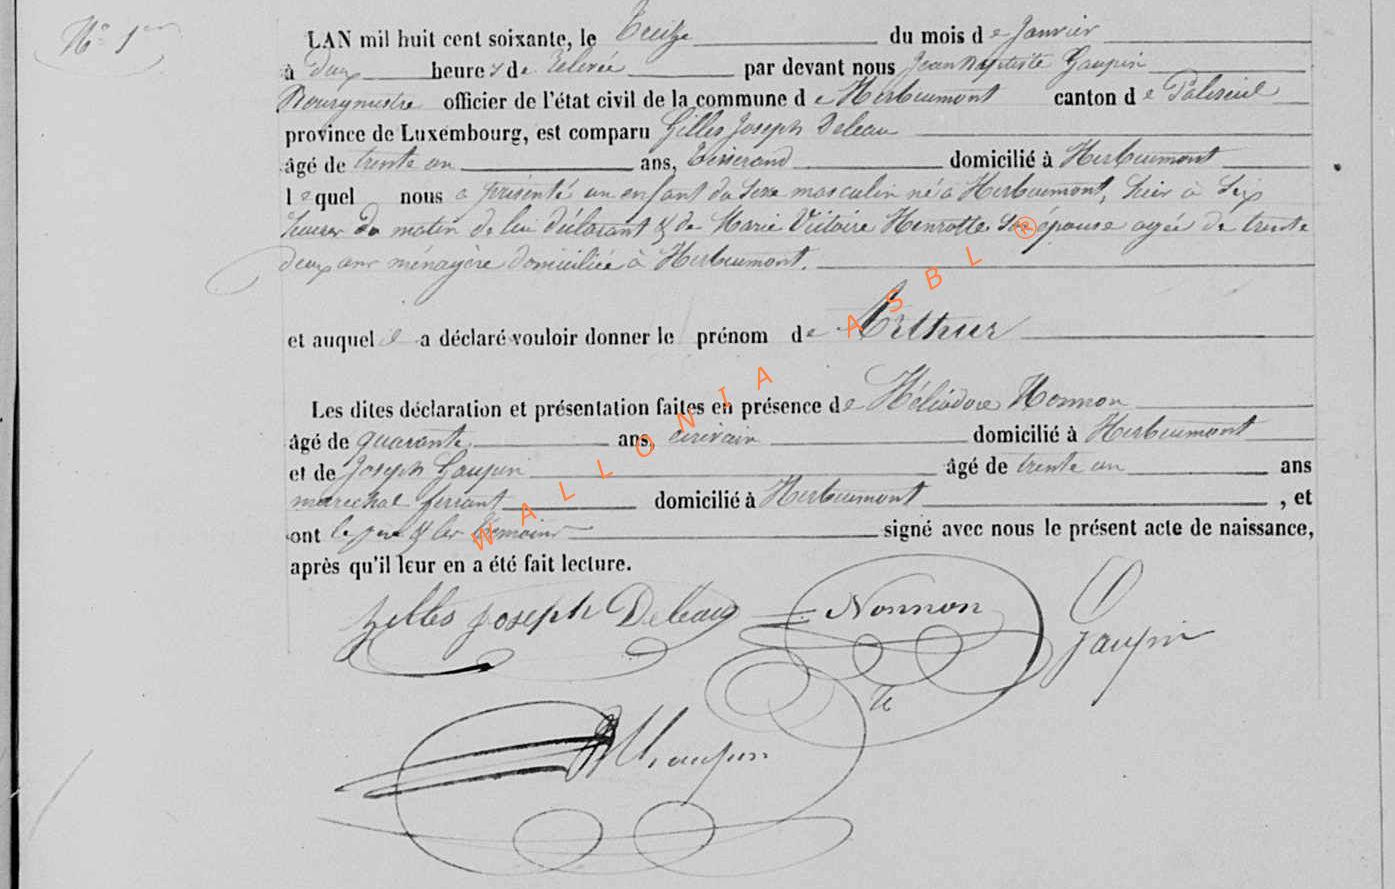 N° 1er
LAN mil huit cent soixante, le Treize du mois de Janvier
à deux heures de relevée par devant nous Jean Baptiste Gaupin
Bourgmestre officier de l'état civil de la commune de Herbeumont canton de Paliseul
province de Luxembourg, est comparu Gilles Joseph Deleau
âgé de trente un ans, Tisserand domicilié à Herbeumont
lequel nous a présenté un enfant du sexe masculin né à Herbeumont, hier à six
heures du matin de lui déclarant & de Marie Victoire Henrotte son épouse agée de trente
deux ans ménagère domiciliée à Herbeumont.
et auquel il a déclaré vouloir donner le prénom de Arthur
Les dites déclaration et présentation faites en présence de Héliodore Nonnon
âgé de quarante ans, écrivain domicilié à Herbeumont
et de Joseph Gaupin âgé de trente un ans
maréchal ferrant domicilié à Herbeumont, et
ont le père & les témoins signé avec nous le présent acte de naissance,
après qu'il leur en a été fait lecture.
Gilles Joseph Deleau Nonnon Gaupin
Gaupin
WALLONIA ASBL ®